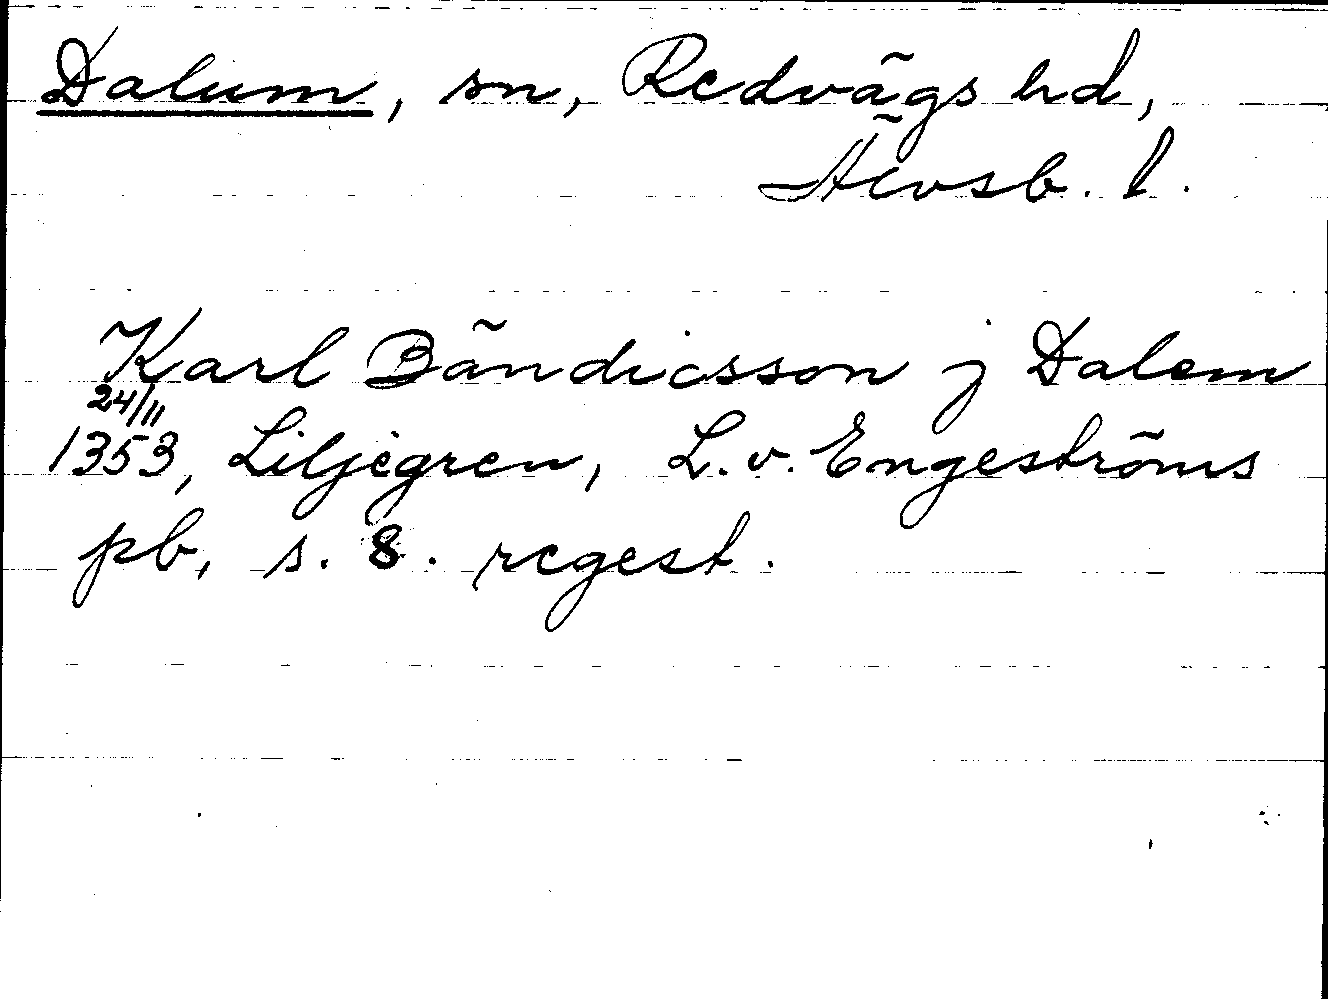 Dalum, sn, Redvägs hd,
Älvsb. l.
Karl Bändicsson j Dalem
24/11
1353, Liljegren, L. v. Engeströms
pb, s. 8. regest.